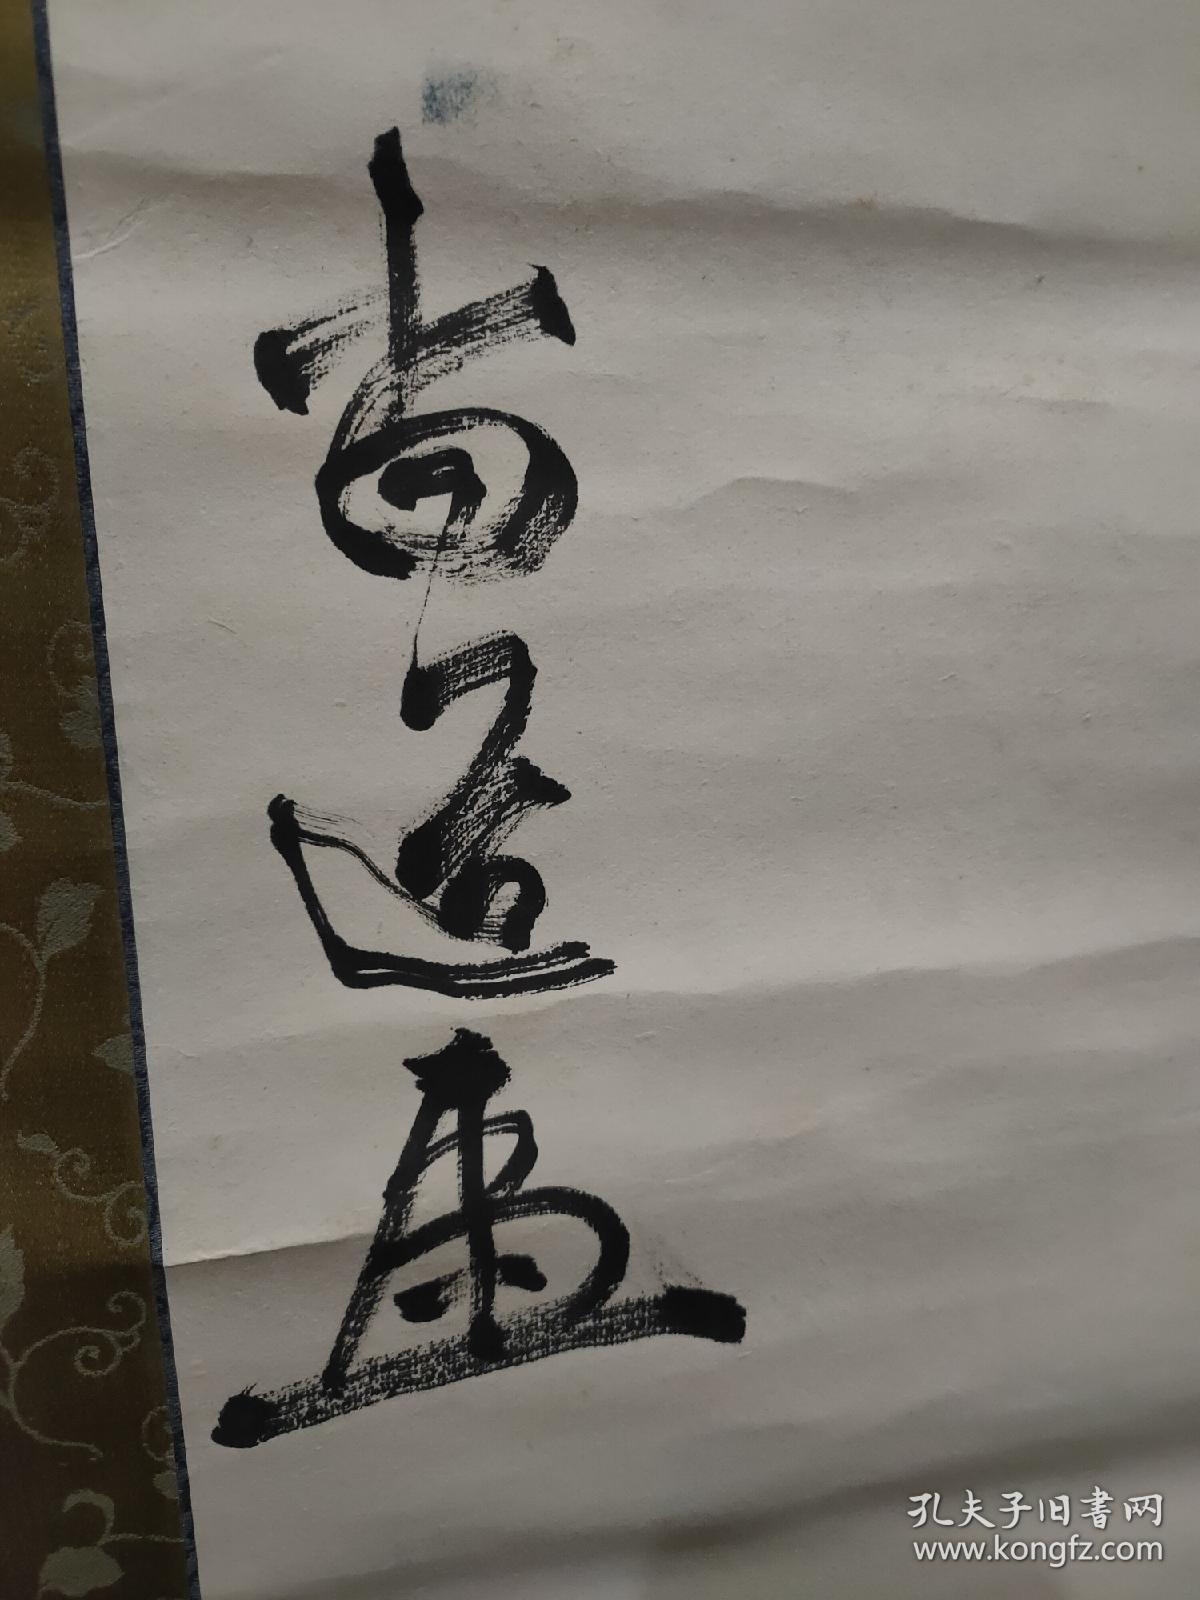 尚道画
孔夫子旧書网
www.kongfz.com